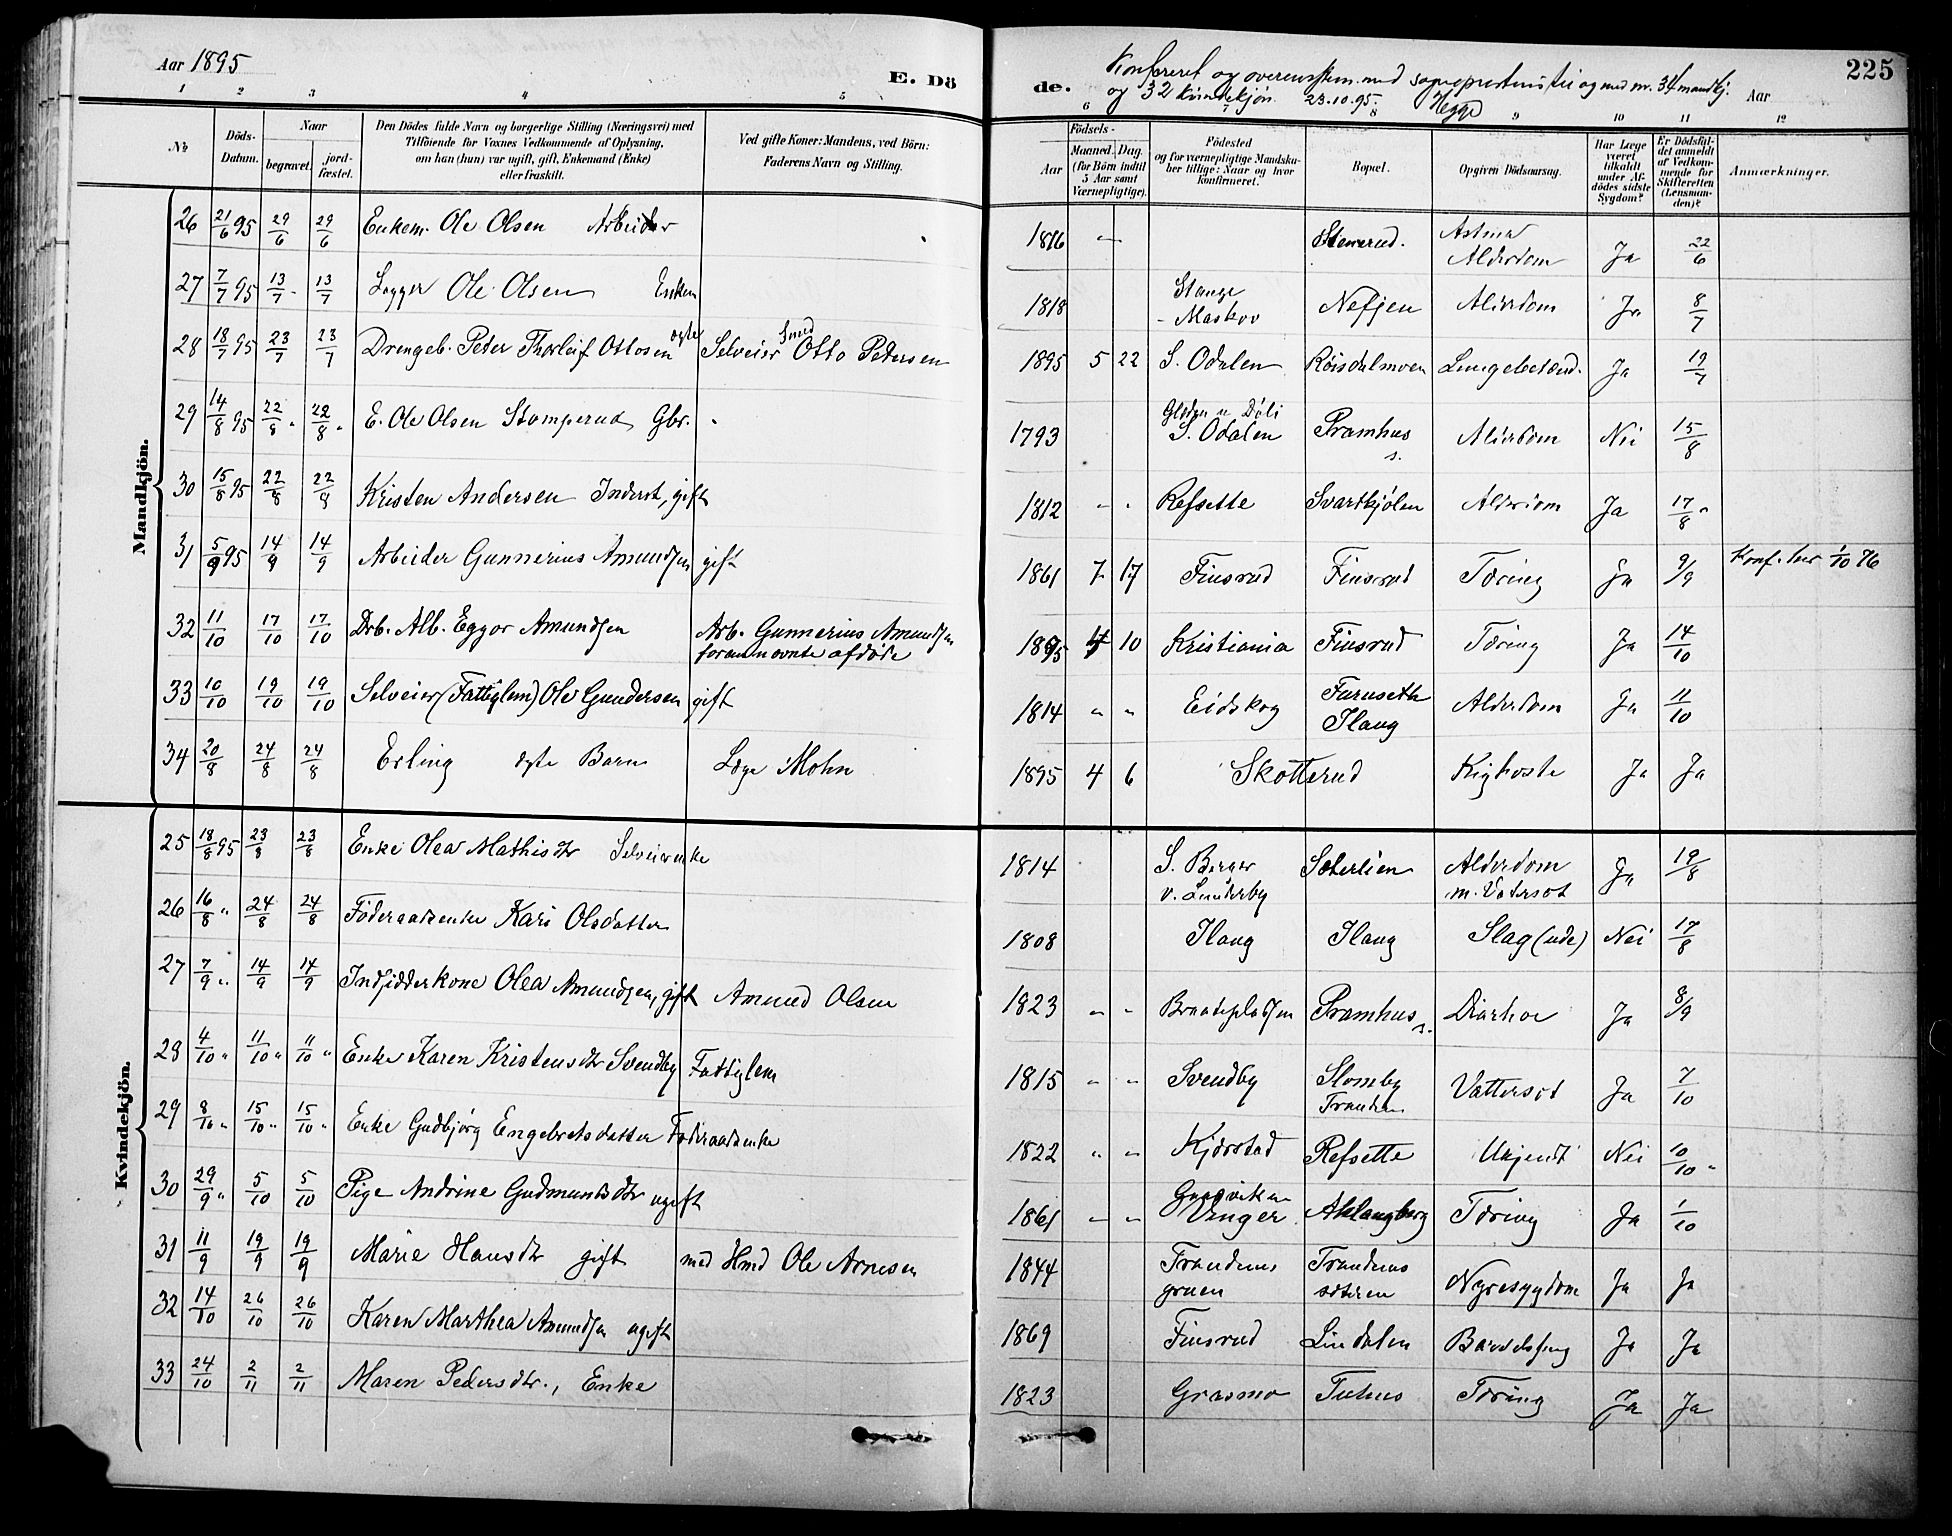 Aar 1895
E. Dö
de.
Konfereret og overensstem. med sogneprestens til og med nr. 34 mandkj.
og 32 kvindekjøn. 23.10.95. Hegge
Aar
225
1 2 3 4 5 6 7 8 9 10 11 12
№ | Döds-Datum. | Naar begravet. | jord-fæstet. | Den Dödes fulde Navn og borgerlige Stilling (Næringsvei) med Tilföiende for Voxnes Vedkommende af Oplysning, om han (hun) var ugift, gift, Enkemand (Enke) eller fraskilt. | Ved gifte Koner: Mandens, ved Börn: Faderens Navn og Stilling. | Födsels- Aar | Maaned. | Dag. (for Börn indtil 5 Aar samt Værnepligtige). | Födested og for værnepligtige Mandskaber tillige: Naar og hvor konfirmeret. | Bopæl. | Opgiven Dödsaarsag. | Har Læge været tilkaldt under Afdödes sidste Sygdom? | Er Dödsfaldet anmeldt af Vedkommende for Skifteretten (Lensmanden)? | Anmærkninger.
Mandkjön.
26 | 21/6 95 | 29/6 | 29/6 | Enkem. Ole Olsen Arbeider | | 1816 | " | | | Stenerud. | Astma Alderdom | Ja | 22/6
27 | 7/7 95 | 13/7 | 13/7 | Lægger Ole Olsen Enkem | | 1818 | | | Stange - Maskov | Nefjen | Alderdom | Ja | 8/7
28 | 18/7 95 | 23/7 | 23/7 | Drengeb. Peter Thorleif Ottosen ægte | Selveier Smed Otto Pedersen | 1895 | 5 | 22 | S. Odalen | Röisdalmoen | Lungebetænd. | Ja | 19/7
29 | 14/8 95 | 22/8 | 22/8 | E. Ole Olsen Stomperud Gbr. | | 1793 | | | S. Odalen | Pramhus s. | Alderdom | Nei | 15/8
30 | 15/8 95 | 22/8 | 22/8 | Kristen Andersen Inderst, gift | | 1812 | " | " | Refsette | Svartkjølen | Alderdom | Ja | 17/8 "
31 | 5/9 95 | 14/9 | 14/9 | Arbeider Gunnerius Amundsen | gift | 1861 | 7 | 17 | Finsrud | Finsrud | Tæring | Ja | 9/9 | Konf. her 1/10 76
32 | 11/10 | 17/10 | 17/10 | Drb. Alb. Eggor Amundsen | Arb. Gunnerius Amundsen forannævnte afdøde | 1895 | 4 | 10 | Kristiania | Finsrud | Tæring | Ja | 14/10
33 | 10/10 | 19/10 | 19/10 | Selveier (Fattiglem) Ole Gundersen | gift | 1814 | " | " | Eidskog | Furuseth Ilaug | Alderdom | Ja | 11/10
34 | 20/8 | 24/8 | 24/8 | Erling ægte Barn | Læge Mohn | 1895 | 4 | 6 | Skotterud | | Kighoste | Ja | Ja
Kvindekjön.
25 | 18/8 95 | 23/8 | 23/8 | Enke Olea Mathisdtr Selveierenke | | 1814 | | | S. Berger v. Linderby | Sæterlien | Alderdom m. Vatersot | Ja | 19/8
26 | 16/8 " | 24/8 | 24/8 | Føderaadsenke Kari Olsdatter | | 1808 | | | Ilaug | Ilaug | Slag (ude) | Nei | 17/8
27 | 7/9 " | 14/9 | 14/9 | Indsidderkone Olea Amundsen, gift | Amund Olsen | 1823 | " | " | Braateplassen | Pramhus s. | Diarhoe | Ja | 8/9
28 | 4/10 " | 11/10 " | 11/10 " | Enke Karen Kristensdtr Svendby | Fattiglem | 1815 | " | " | Svendby | Slomby | Vattersot | Ja | 7/10
29 | 8/10 " | 15/10 " | 15/10 " | Enke Gudbjørg Engebretsdatter Føderaadsenke | | 1822 | " | " | Kjørstad | Refsette | Ukjendt | Nei | 10/10 "
30 | 29/9 " | 5/10 | 5/10 | Pige Andrine Gudmundsdtr ugift | | 1861 | " | " | Vinger | Aklangberg | Tæring | Ja | 1/10
31 | 11/9 | 19/9 | 19/9 | Marie Hansdtr gift | med Hmd Ole Arnesen | 1844 | | | | | Nyresygdom | Ja | Ja
32 | 14/10 | 26/10 | 26/10 | Karen Marthea Amundsen ugift | | 1869 | | | Finsrud | Lindalen | Barselseng | Ja | Ja
33 | 24/10 | 2/11 | 2/11 | Maren Pedersdtr., Enke | | 1823 | | | Grasmo | Tuhus | Tæring | Ja | Ja